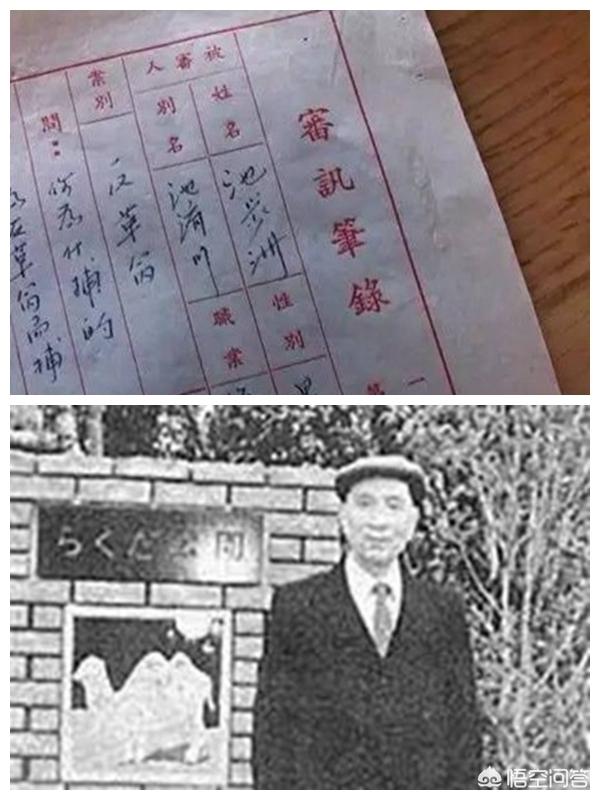 審訊筆錄
第一
被審人
姓名
池步洲
性別
男
別名
池濟川
職業
案別
反革命
問：
反革命而捕
らくだ公園
悟空问答